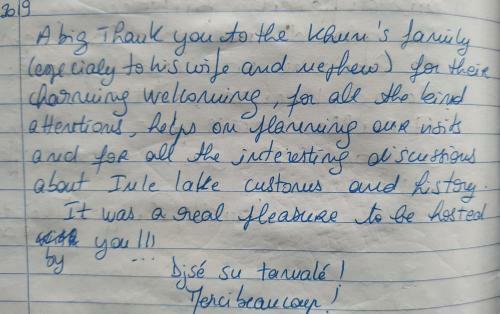 2019
A big Thank you to the Khun's family
(especialy to his wife and nephew) for their
charming welcoming, for all the kind
attentions, helps on planning our visits
and for all the interesting discussions
about Inle lake customs and history.
It was a real pleasure to be hosted
by you!!!
...
Djsé su tanualé!
Merci beaucoup!